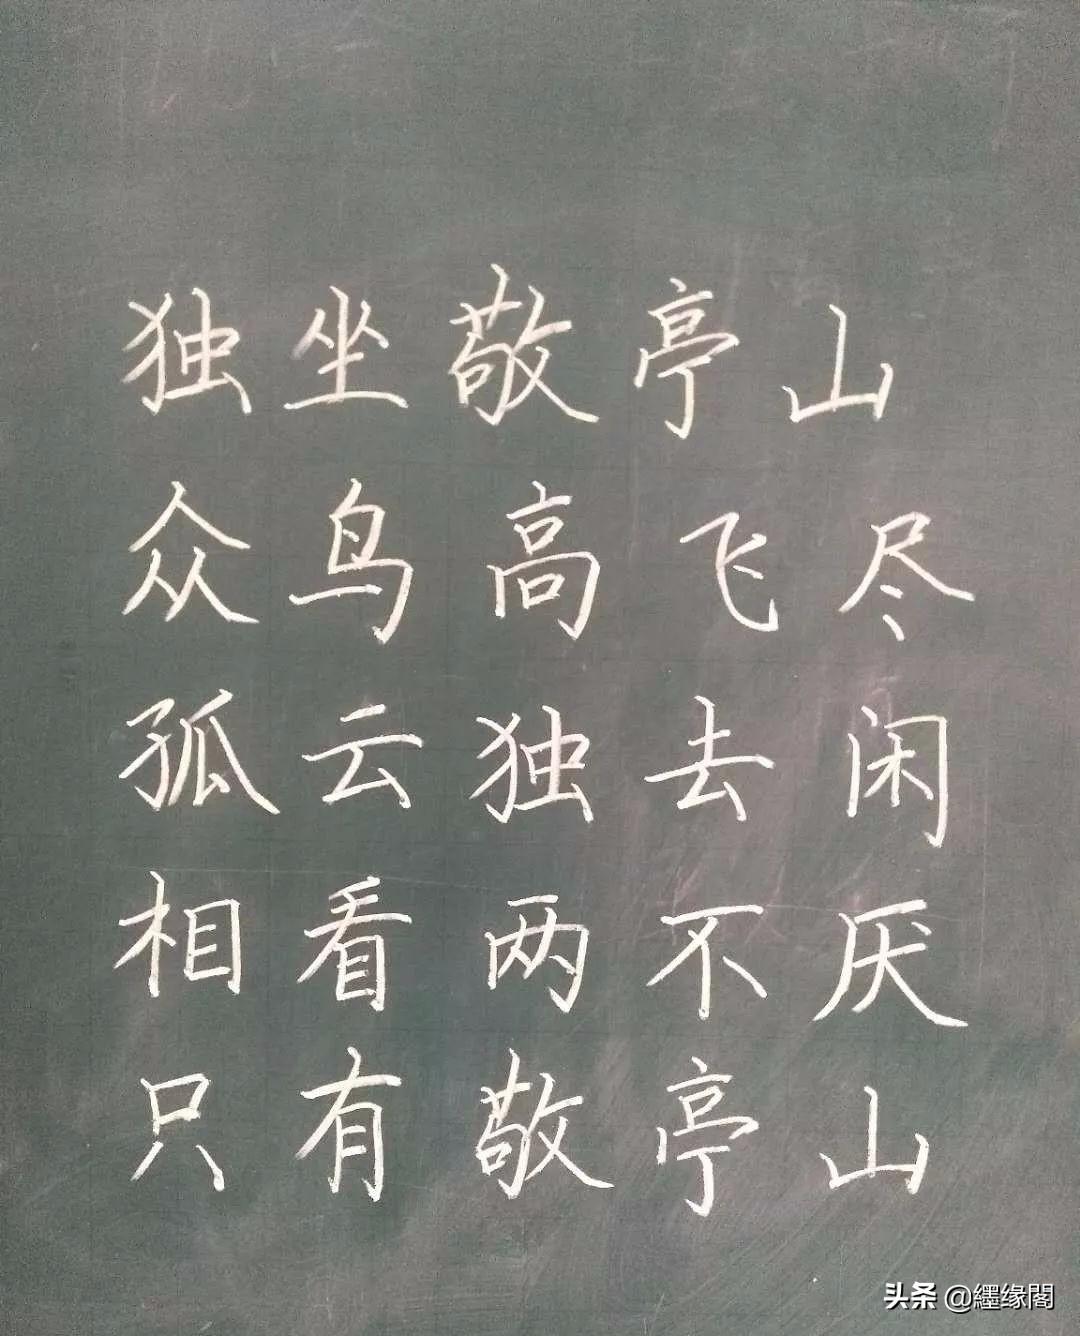 独坐敬亭山
众鸟高飞尽
孤云独去闲
相看两不厌
只有敬亭山
头条 @纆缘閣